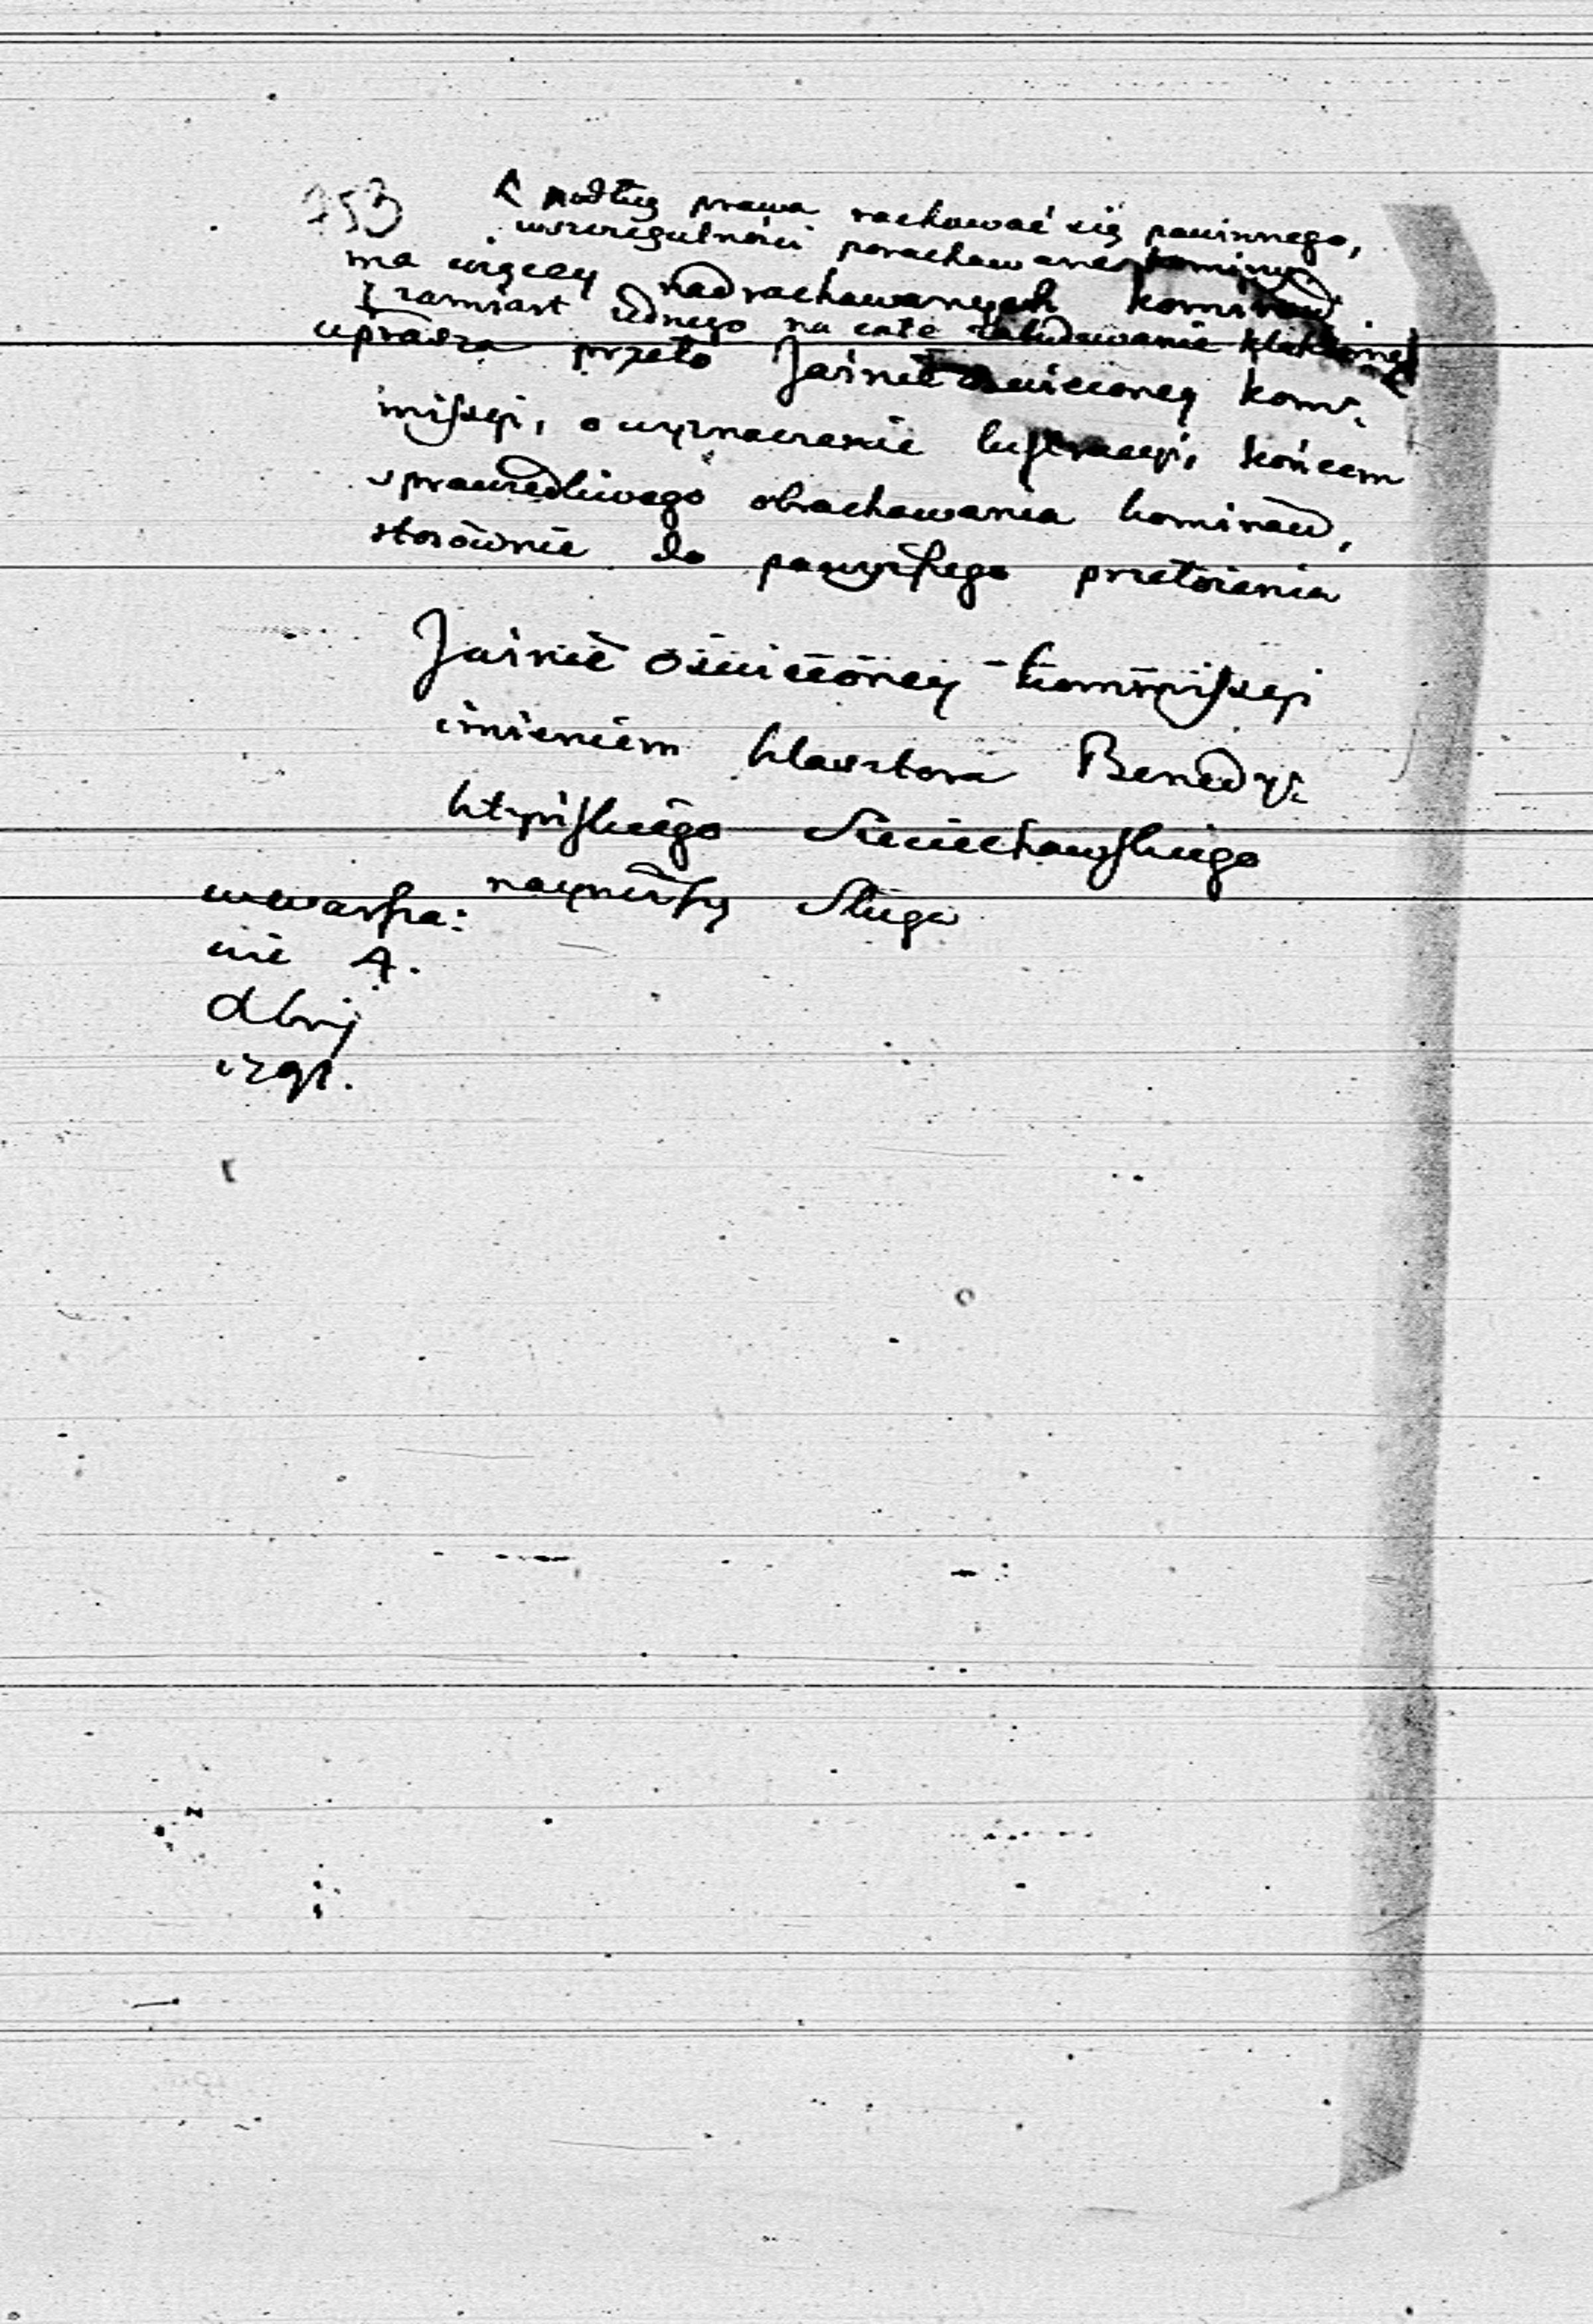 753
podług prawa rachować się powinnego,
wszczególności porachowane kominy
ma więcey nadrachowanych kominów.
zamiast iednego na całe zabudowanie
uprasza przeto Jaśnie oswieconey kom:
missyi, o wyznaczenie lustracyi, końcem
sprawiedliwego obrachowania kominów,
stosownie do powyższego przełożenia
Jaśnie Oświeconey Kommissyi
imieniem klasztora Benedy:
ktyńskiego Sieciechowskiego
nayniższy Sługa
w warsza:
wie 4.
dbrij